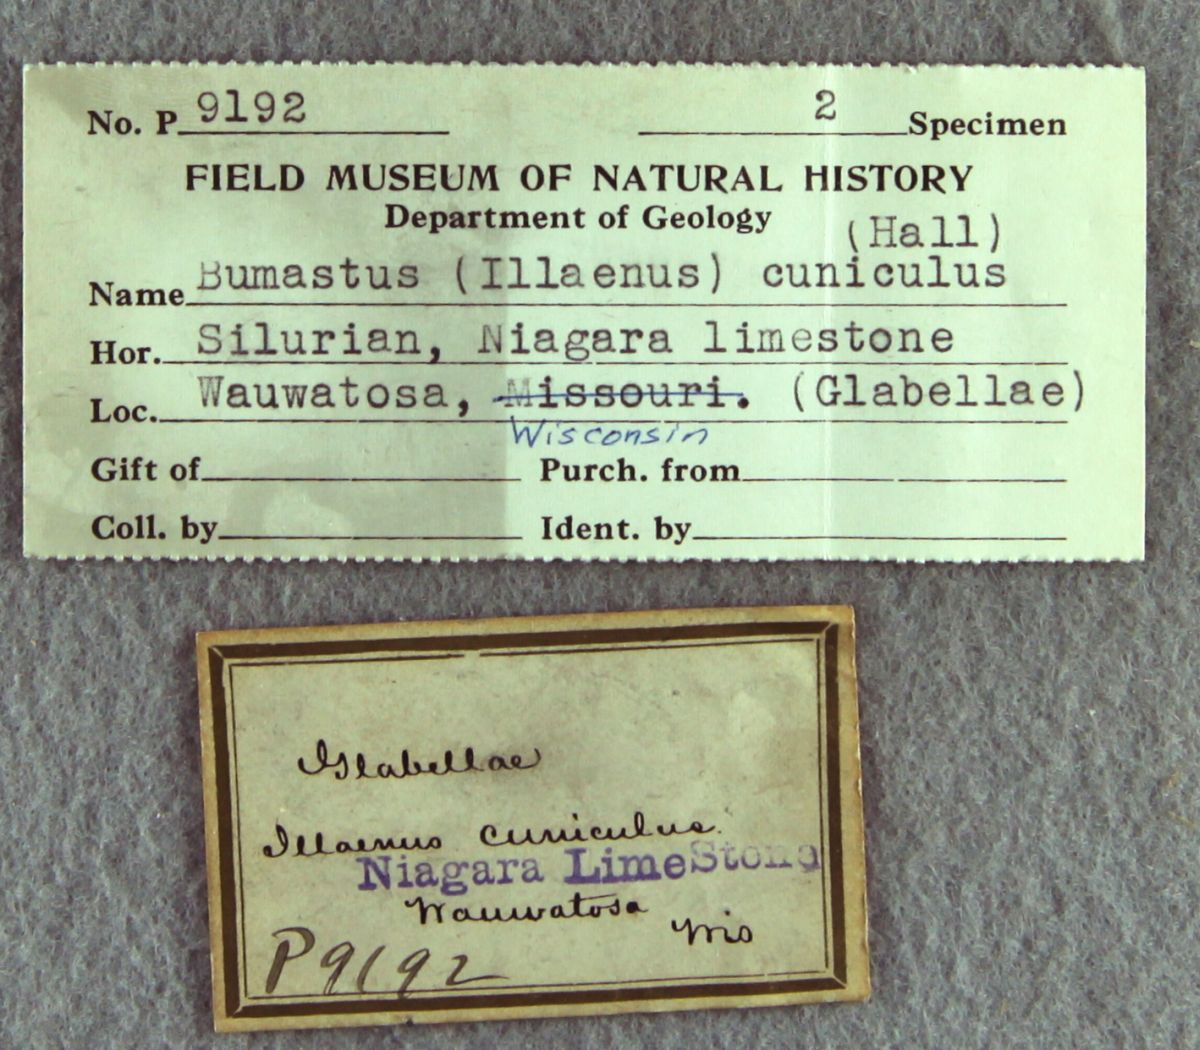 No. P 9192 2 Specimen
FIELD MUSEUM OF NATURAL HISTORY
Department of Geology
(Hall)
Name Bumastus (Illaenus) cuniculus
Hor. Silurian, Niagara limestone
Loc. Wauwatosa, Missouri. (Glabellae)
Wisconsin
Gift of Purch. from
Coll. by Ident. by
Glabellae
Illaenus cuniculus.
Niagara LimeStone
Wauwatosa
Wis
P9192